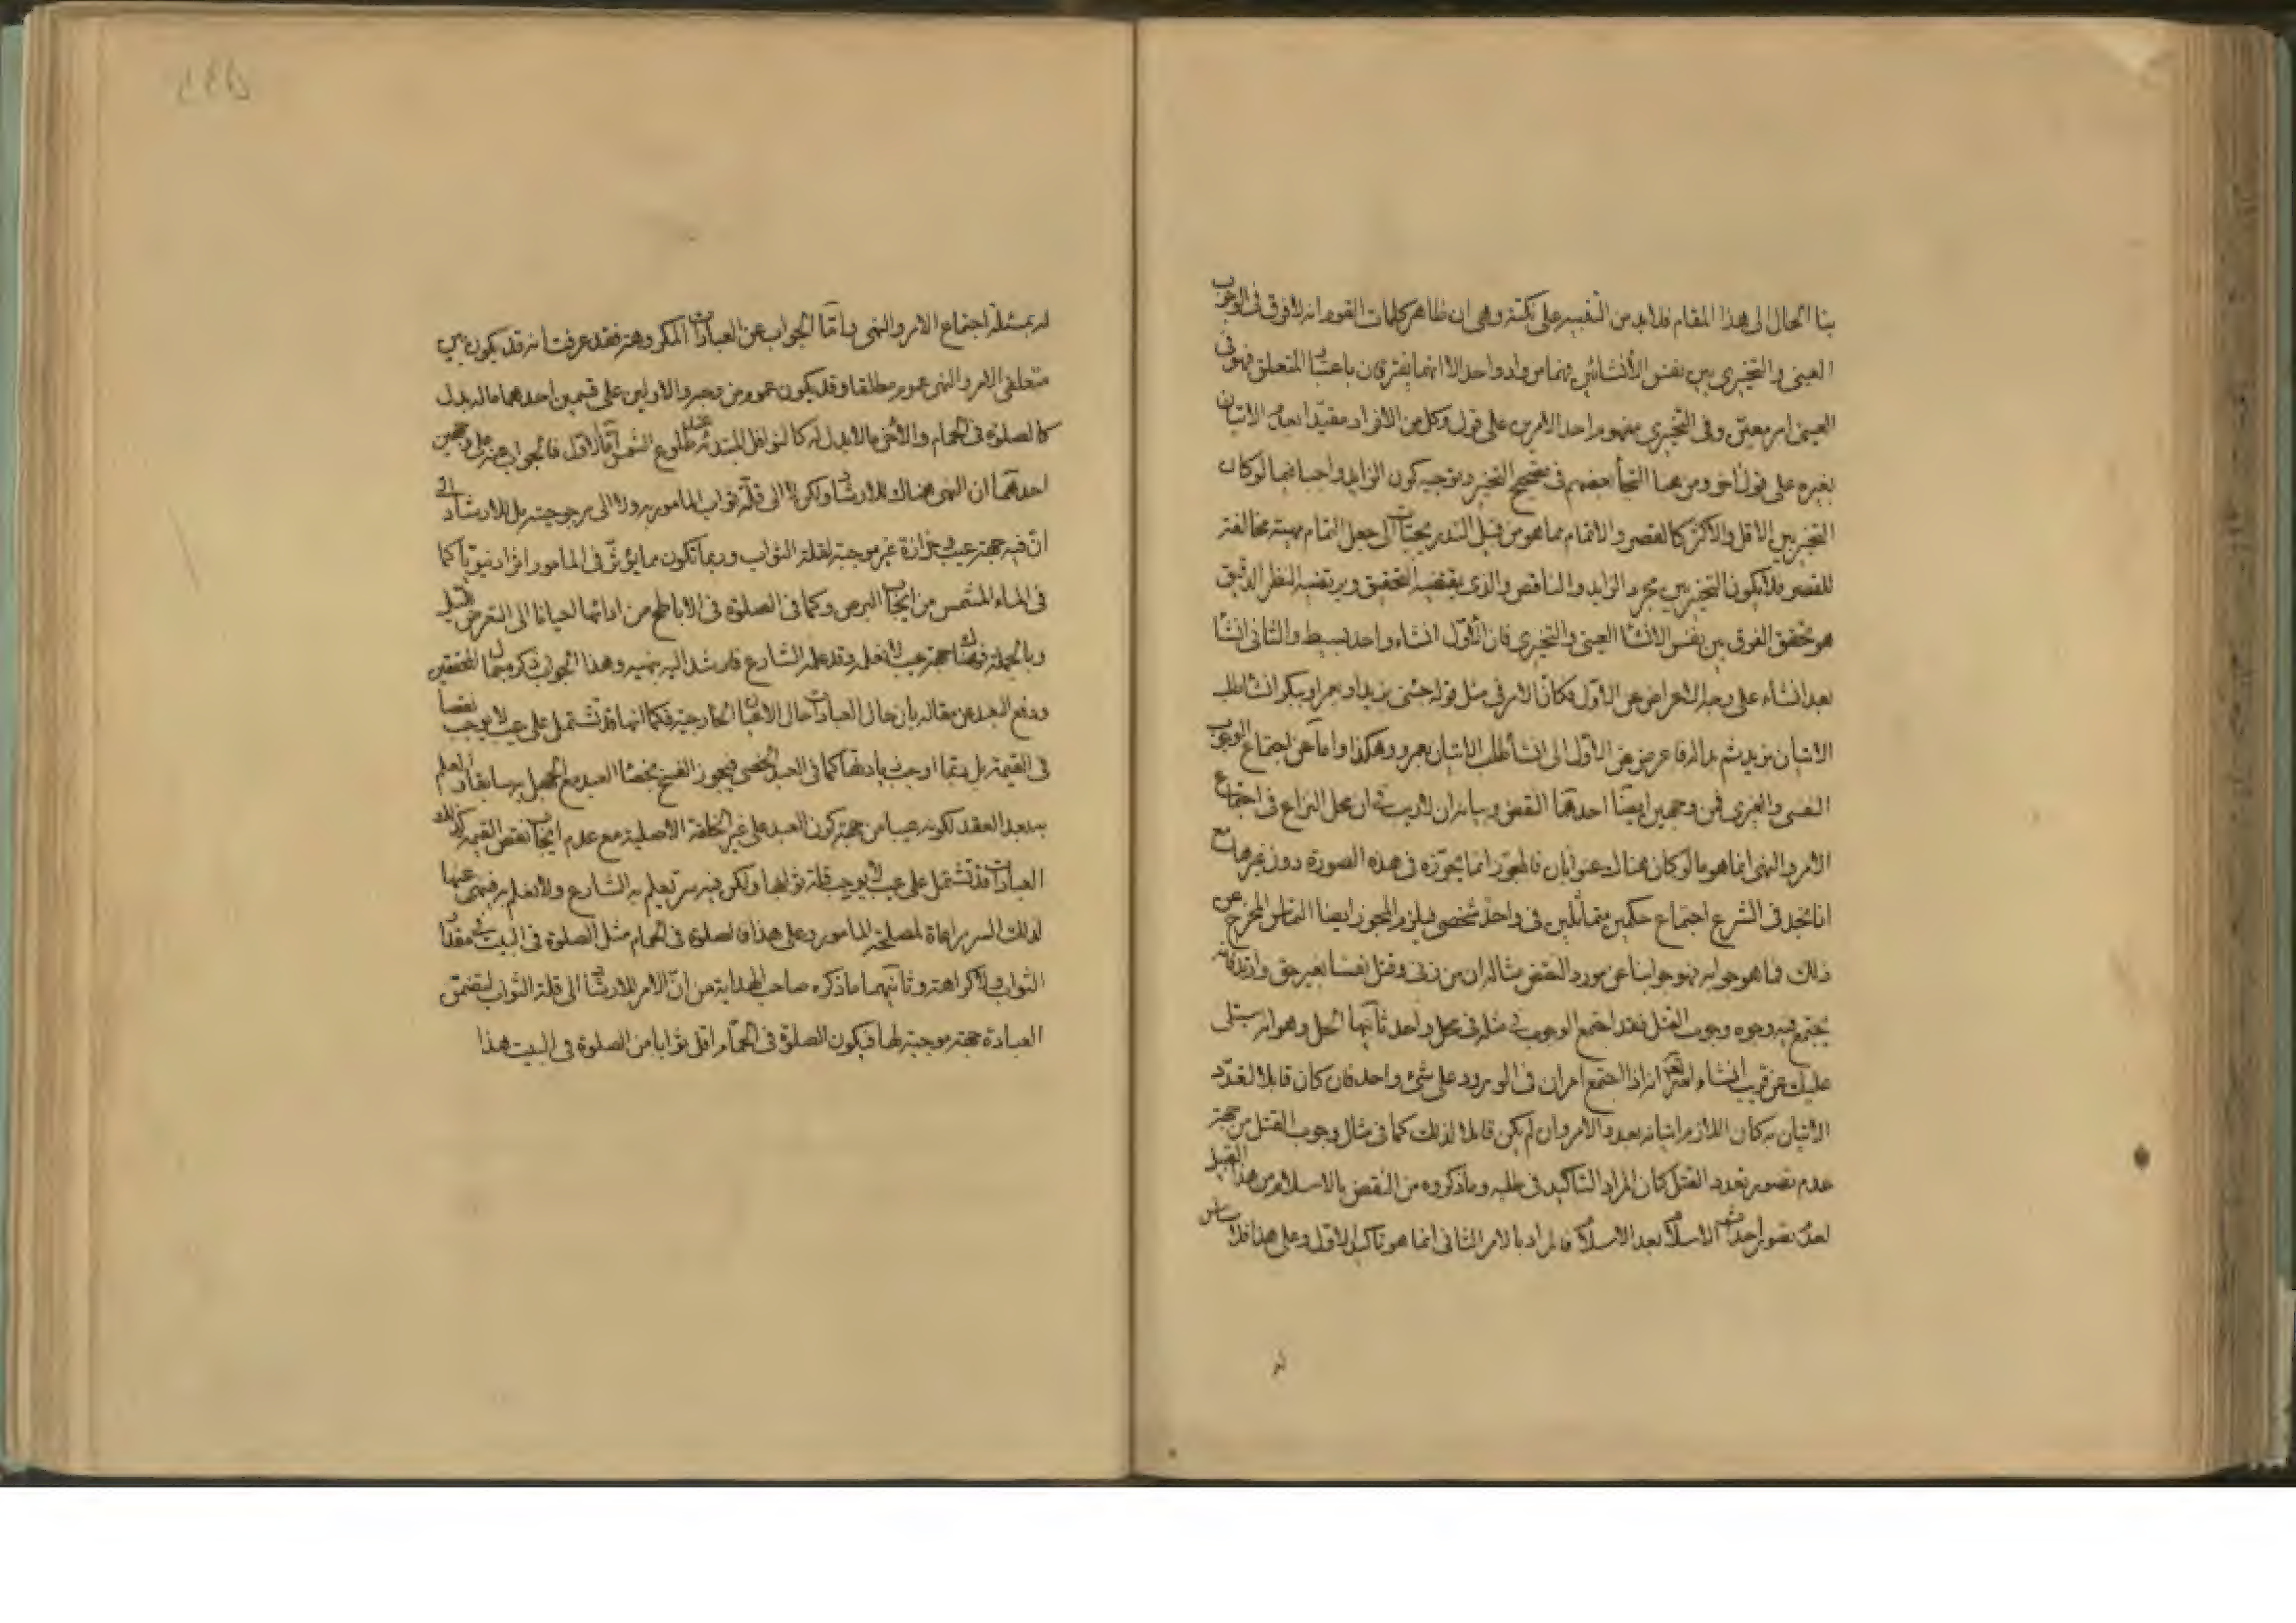 بنا الحال الى هذا المقام فلابد من التنبيه على نكتة وهى ان ظاهر كلمات القوم انه لا فرق فى الوجوب
العينى والتخييرى بين نفس الانشائين فهما من واد واحد الا انهما يفترقان باعتبار المتعلق فهو فى
العينى امر معين وفى التخييرى مفهوم احد الامرين على قول وكل من الافراد مقيدا بعدم الاتيان
بغيره على قول اخر ومن هنا التجأ بعضهم فى تصحيح التخيير وتوجيه كون الزايد واجبا فيما لو كان
التخيير بين الاقل والاكثر كالقصر والاتمام مما هو من قبيل التدريجيات الى جعل التمام مهية مخالفة
للقصر فلا يكون التخيير بين مجرد الزايد والناقص والذى يقتضيه التحقيق ويرتضيه النظر الدقيق
هو تحقق الفرق بين نفس الانشاء العينى والتخييرى فان الاول انشاء واحد بسيط والثانى انشاء
بعد انشاء على وجه الاعراض عن الاول فكان الامر فى مثل قوله جئنى بزيد او بعمرو او ببكر انشا طلب
الاتيان بزيد ثم بدا له فاعرض عن الاول الى انشاء طلب الاتيان بعمرو وهكذا واما عن اجتماع الوجوب
النفسى والغيرى فمن وجهين ايضا احدهما النقض وبيانه ان لا ريب فى ان محل النزاع فى اجتماع
الامر والنهى انما هو ما لو كان هناك عنوانان فالمجوز انما يجوزه فى هذه الصورة دون غيرها مع
انا نجد فى الشرع اجتماع حكمين متماثلين فى واحد شخصى فيلزم المجوز ايضا التماس المخرج عن
ذلك فما هو جوابه فهو جوابنا عن مورد النقض مثاله ان من زنى وقتل نفسا بغير حق وارتد فانه
يجتمع فيه وجوه وجوب القتل فقد اجتمع الوجوب فى مثله فى محل واحد ثانيهما الحل وهو انه سيتلى
عليك عن قريب انشاء الله تعالى انه اذا اجتمع امران فى الورود على شئ واحد فان كان قابلا لتعدد
الاتيان به كان اللازم اتيانه بعدد الامر وان لم يكن قابلا لذلك كما فى مثال وجوب القتل من جهة
عدم تصوير تعدد القتل كان المراد التاكيد فى طلبه وما ذكروه من النقض بالاسلام من هذا القبيل
لعدم تصور احداث الاسلام بعد الاسلام فالمراد بالامر الثانى انما هو تاكيد الاول وعلى هذا فلا مساس
له
له بمسئلة اجتماع الامر والنهى واما الجواب عن العبادات المكروهة فقد عرفت انه قد يكون بين
متعلقى الامر والنهى عموم مطلقا وقد يكون عموم من وجه والاولين على قسمين احدهما ما له بدل
كالصلوة فى الحمام والاخر ما لا بدل له كالنوافل المبتدئة عند طلوع الشمس اما الاول فالجواب عنه على وجهين
احدهما ان النهى هناك للارشاد ولكن لا الى قلة ثواب المامور به ولا الى مرجوحيته بل للارشاد الى
ان فيه جهة عيب وحزازة غير موجبة لقلة الثواب وربما تكون مما يؤثر فى المامور اثرا دنيويا كما
فى الماء المشمس من ايجاب البرص وكما فى الصلوة فى الاباطح من ادائها احيانا الى التعرض للسيل
وبالجملة فهناك جهة عيب لا نعلمه وقد علمه الشارع فارشد اليه بنهيه وهذا الجواب ذكره المحققين
ودفع البعد عن مقاله بان حال العبادات حال الاعيان الخارجية فكما انها قد تشتمل على عيب لا يوجب نقصا
فى القيمة بل ربما اوجب زيادتها كما فى العبد الخصى فيجوز الفسخ بخصاء العبد مع الجهل به سابقا والعلم
به بعد العقد لكونه عيبا من جهة كون العبد على غير الخلقة الاصلية مع عدم ايجابه نقص القيمة كذلك
العبادات قد تشتمل على عيب لا يوجب قلة ثوابها ولكن فيه سر يعلم به الشارع ولا نعلم به فنهى عنها
لذلك السر مراعاة لمصلحة المامور وعلى هذا فالصلوة فى الحمام مثل الصلوة فى البيت فى مقدار
الثواب ولا كراهة وثانيهما ما ذكره صاحب الهداية من ان الامر للارشاد الى قلة الثواب لتضمن
العبادة جهة موجبة لها فيكون الصلوة فى الحمام اقل ثوابا من الصلوة فى البيت هذا